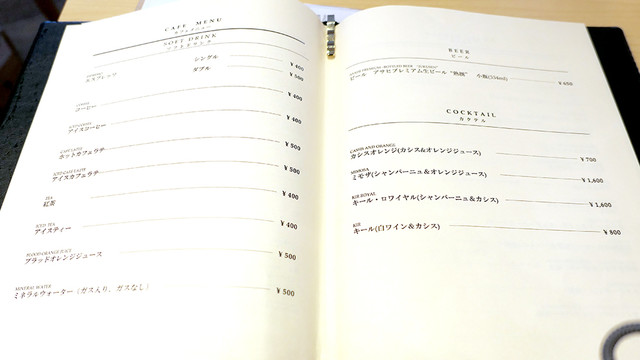 CAFE MENU
カフェメニュー
SOFT DRINK
ソフトドリンク
シングル ¥400
エスプレッソ
ダブル ¥500
コーヒー ¥400
ICED COFFEE
アイスコーヒー ¥400
CAFE LATTE
ホットカフェラテ ¥500
ICED CAFE LATTE
アイスカフェラテ ¥500
TEA
紅茶 ¥400
ICED TEA
アイスティー ¥400
BLOOD ORANGE JUICE
ブラッドオレンジジュース ¥500
MINERAL WATER
ミネラルウォーター（ガス入り、ガスなし） ¥500
BEER
ビール
ビール アサヒプレミアム生ビール "熟撰" 小瓶(334ml) ¥650
COCKTAIL
カクテル
CASSIS AND ORANGE
カシスオレンジ(カシス&オレンジジュース) ¥700
MIMOSA
ミモザ(シャンパーニュ&オレンジジュース) ¥1,600
KIR ROYAL
キール・ロワイヤル(シャンパーニュ&カシス) ¥1,600
KIR
キール(白ワイン&カシス) ¥800